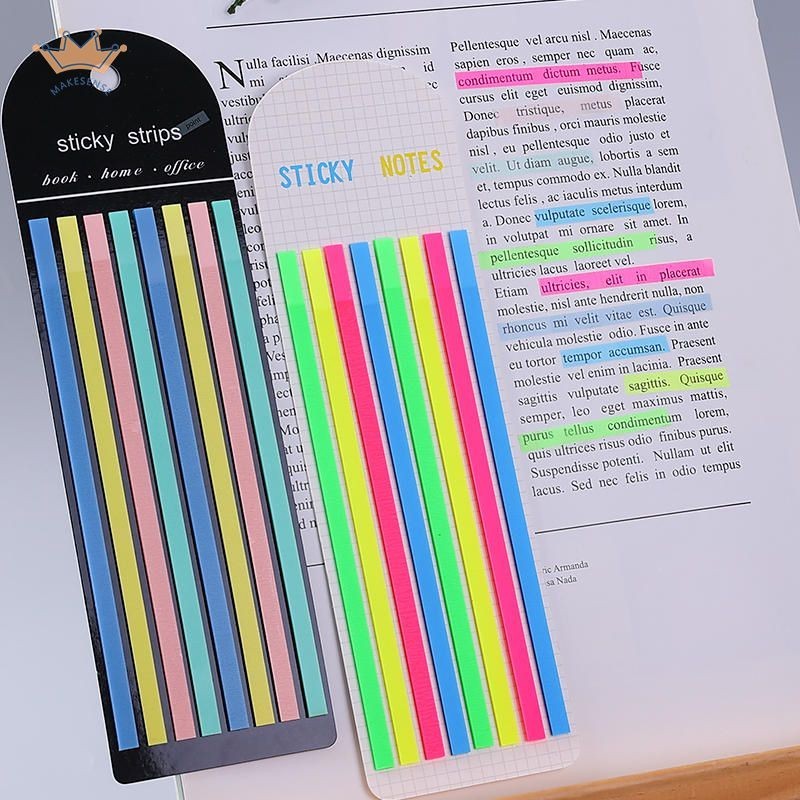 MAKESENSE
sticky strips
point
book · home · office
STICKY NOTES
Nulla facilisi .Maecenas dignissim
mi id
vestibu
Pellentesque vel arcu nisl . Maecenas
sapien eros , semper nec quam ac,
condimentum dictum metus. Fusce
cursus elit eget euismod dignissim,
Donec tristique, metus placerat
dapibus finibus , orci mauris molestie
nisl , eu pellentesque odio justo et
velit. Ut diam augue, lobortis a sem
et, tempus commodo ex. Nulla blandit
lectus felis , ac iaculis metus interdum
a. Donec vulputate scelerisque lorem,
in volutpat mi ornare sit amet. In
pellentesque sollicitudin risus, a
ultricies lacus laoreet vel.
Etiam ultricies, elit in placerat
molestie, nisl ante hendrerit nulla, non
rhoncus mi velit vitae est. Quisque
vehicula molestie odio. Fusce in ante
eu tortor tempor accumsan. Praesent
molestie vel enim in lacinia. Praesent
sagittis vulputate sagittis. Quisque
semper, leo eget maximus mattis,
purus tellus condimentum lorem,
quis ultrices risus odio finibus purus.
Suspendisse potenti. Nullam ut elit
lacus. Sed nec felis in odio tempus
ric Armanda
sa Nada